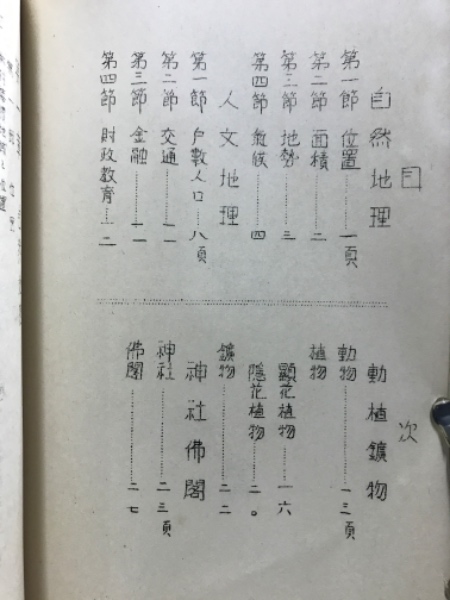 目次
自然地理
第一節 位置………一頁
第二節 面積………二
第三節 地勢………三
第四節 氣候………四
人文地理
第一節 戸數人口……八頁
第二節 交通………一一
第三節 金融………一一
第四節 財政教育……一二
動植鑛物
動物………一三頁
植物
顯花植物………一六
隱花植物………二〇
鑛物………二二
神社佛閣
神社………二三頁
佛閣………二七